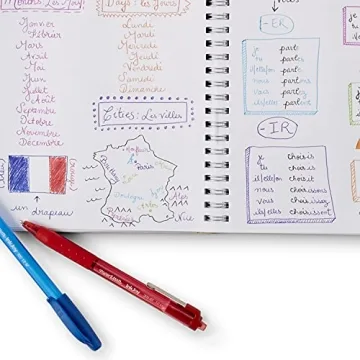 Months: Les Mois
Janvier
Février
Mars
Avril
Mai
Juin
Juillet
Août
Septembre
Octobre
Novembre
Décembre
Days: Les Jours
Lundi
Mardi
Mercredi
Jeudi
Vendredi
Samedi
Dimanche
Cities: Les Villes
un drapeau
Paris
Nice
-ER
je parle
tu parles
il/elle/on parle
nous
vous
ils/elles parlent
-IR
je choisis
tu choisis
il/elle/on choisit
nous choisissons
vous choisissez
ils/elles choisissent